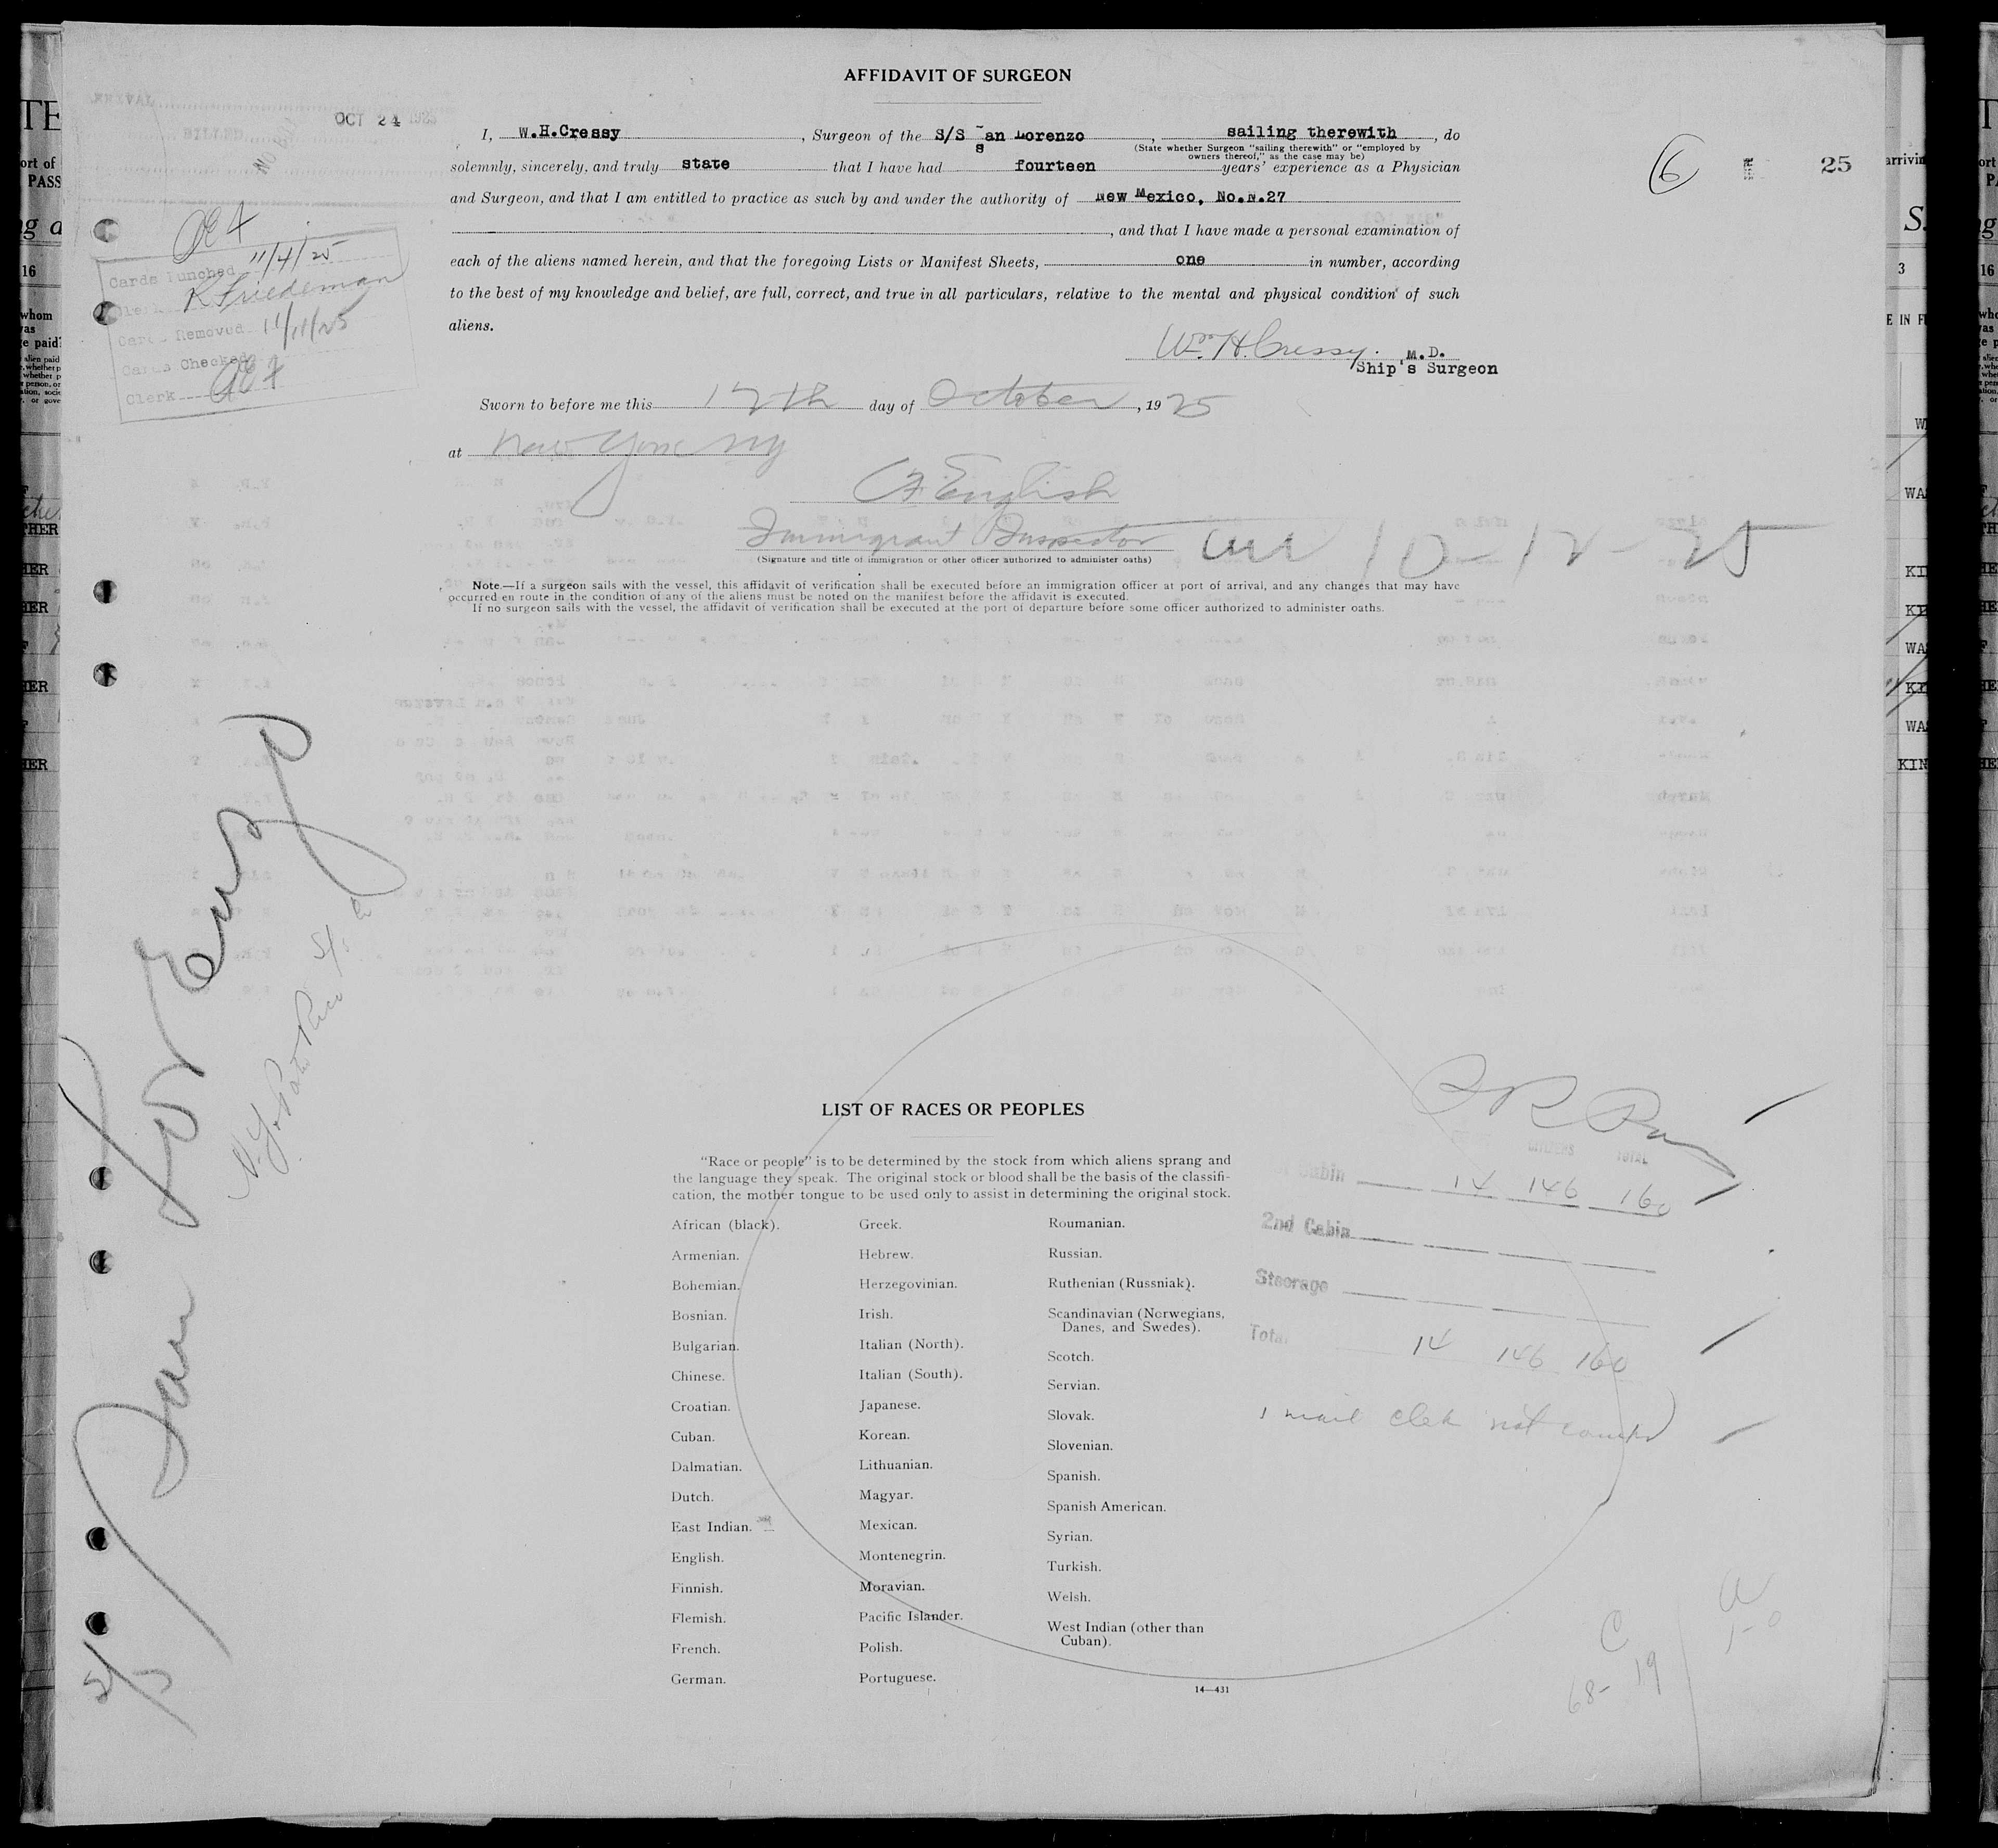 AFFIDAVIT OF SURGEON
OCT 24 1925
I, W.H.Cressy, Surgeon of the S/S San Lorenzo, sailing therewith, do
(State whether Surgeon "sailing therewith" or "employed by
owners thereof," as the case may be)
solemnly, sincerely, and truly state that I have had fourteen years' experience as a Physician
and Surgeon, and that I am entitled to practice as such by and under the authority of New Mexico, No.N.27
, and that I have made a personal examination of
each of the aliens named herein, and that the foregoing Lists or Manifest Sheets, one in number, according
to the best of my knowledge and belief, are full, correct, and true in all particulars, relative to the mental and physical condition of such
aliens.
6
25
BILLED
Cards Punched 11/4/25
Clerk R Friedeman
Cards Removed 11/11/25
Cards Checked
Clerk
Wm H. Cressy. M.D.
Ship's Surgeon
Sworn to before me this 12th day of October, 1925
at New York NY
English
Immigrant Inspector
(Signature and title of immigration or other officer authorized to administer oaths)
arr 10-12-25
Note.—If a surgeon sails with the vessel, this affidavit of verification shall be executed before an immigration officer at port of arrival, and any changes that may have
occurred en route in the condition of any of the aliens must be noted on the manifest before the affidavit is executed.
If no surgeon sails with the vessel, the affidavit of verification shall be executed at the port of departure before some officer authorized to administer oaths.
San Lorenzo
N.Y. & Porto Rico
LIST OF RACES OR PEOPLES
"Race or people" is to be determined by the stock from which aliens sprang and
the language they speak. The original stock or blood shall be the basis of the classifi-
cation, the mother tongue to be used only to assist in determining the original stock.
African (black).
Armenian.
Bohemian.
Bosnian.
Bulgarian.
Chinese.
Croatian.
Cuban.
Dalmatian.
Dutch.
East Indian.
English.
Finnish.
Flemish.
French.
German.
Greek.
Hebrew.
Herzegovinian.
Irish.
Italian (North).
Italian (South).
Japanese.
Korean.
Lithuanian.
Magyar.
Mexican.
Montenegrin.
Moravian.
Pacific Islander.
Polish.
Portuguese.
Roumanian.
Russian.
Ruthenian (Russniak).
Scandinavian (Norwegians,
Danes, and Swedes).
Scotch.
Servian.
Slovak.
Slovenian.
Spanish.
Spanish American.
Syrian.
Turkish.
Welsh.
West Indian (other than
Cuban).
14—431
CITIZENS TOTAL
Cabin 14 146 160
2nd Cabin
Steerage
Total 14 146 160
1 mail clerk not counted
C
68- 19